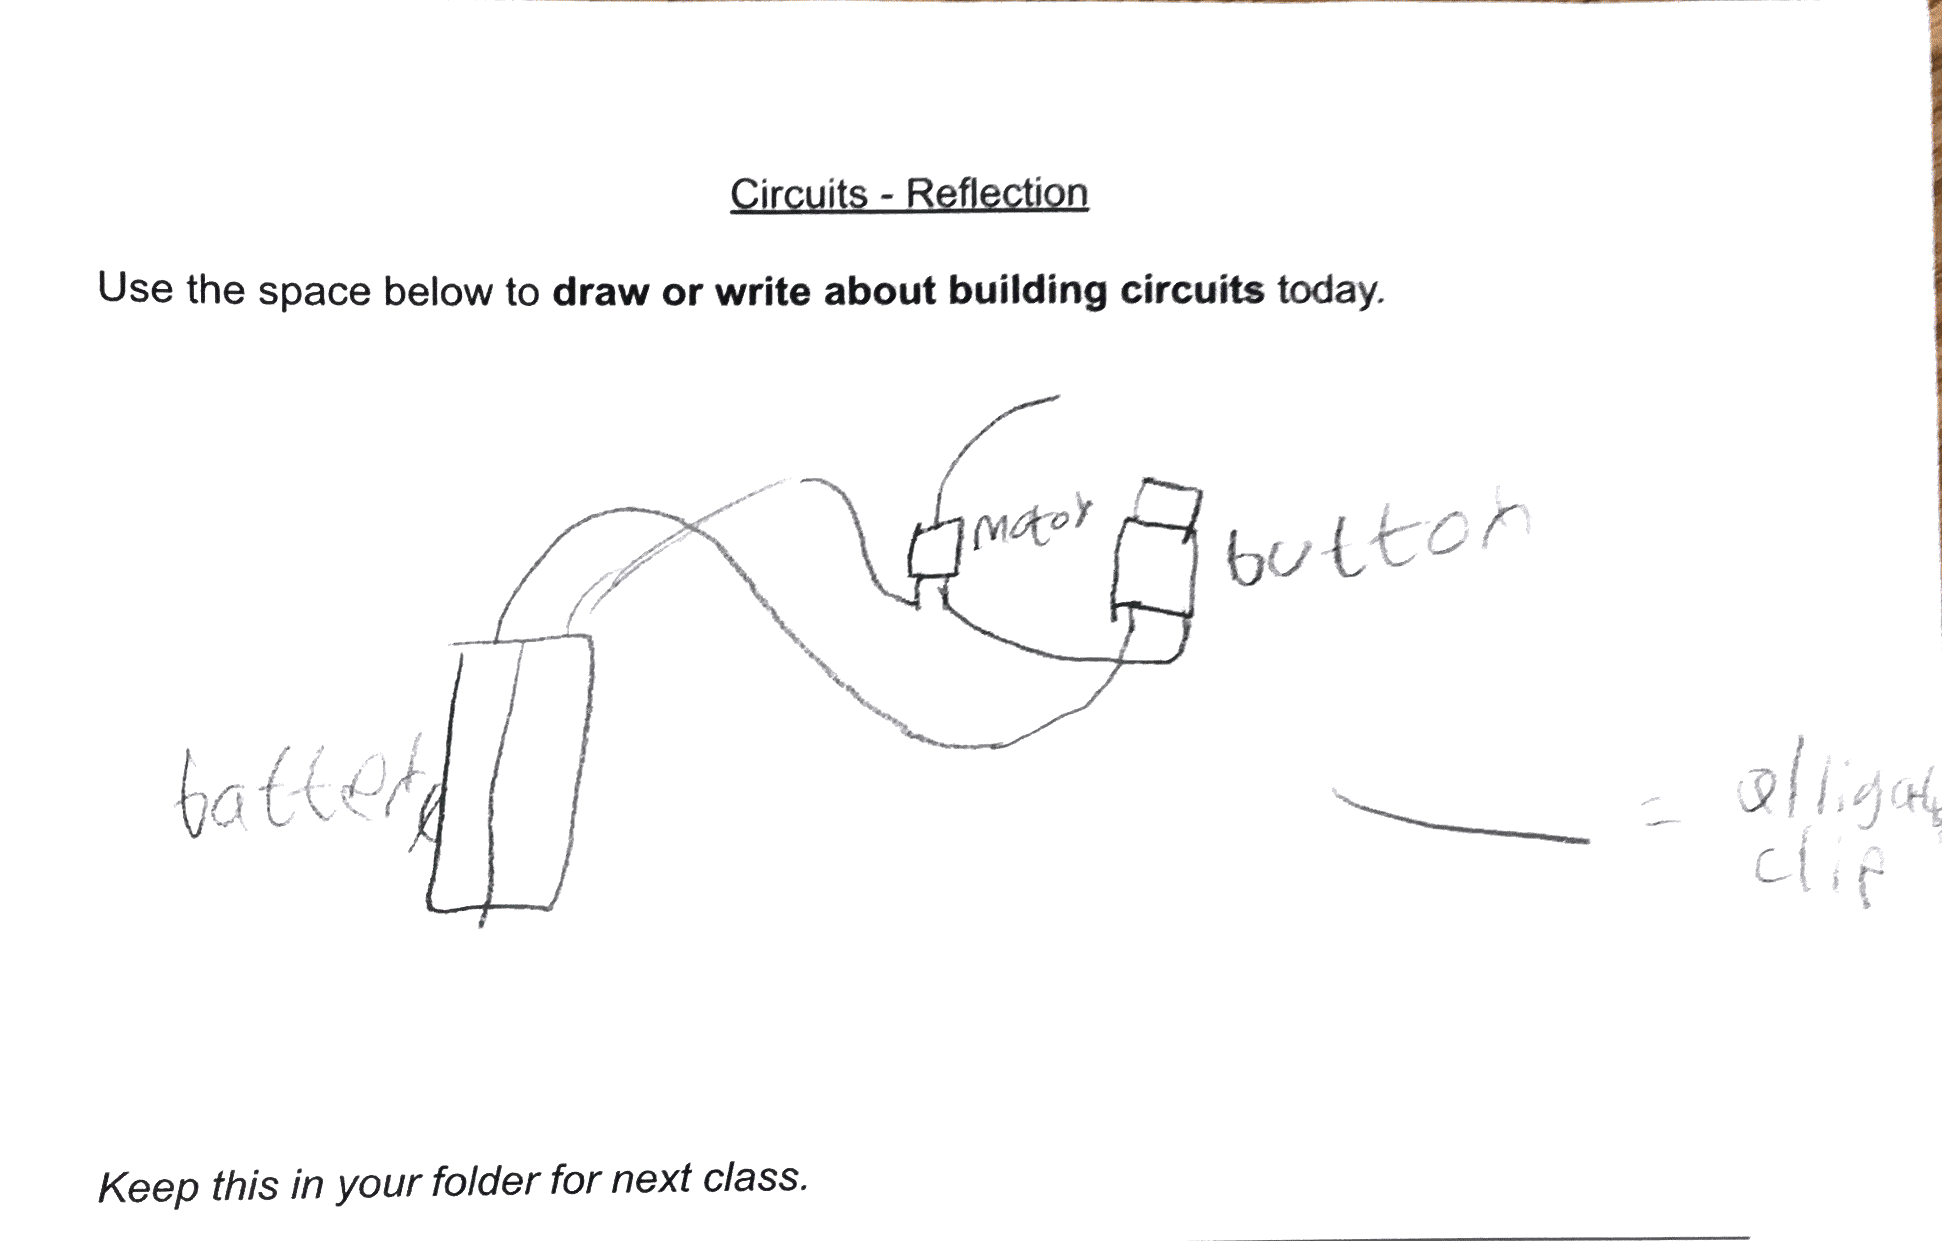 Circuits - Reflection
Use the space below to draw or write about building circuits today.
motor
button
battery
= alligat
clip
Keep this in your folder for next class.